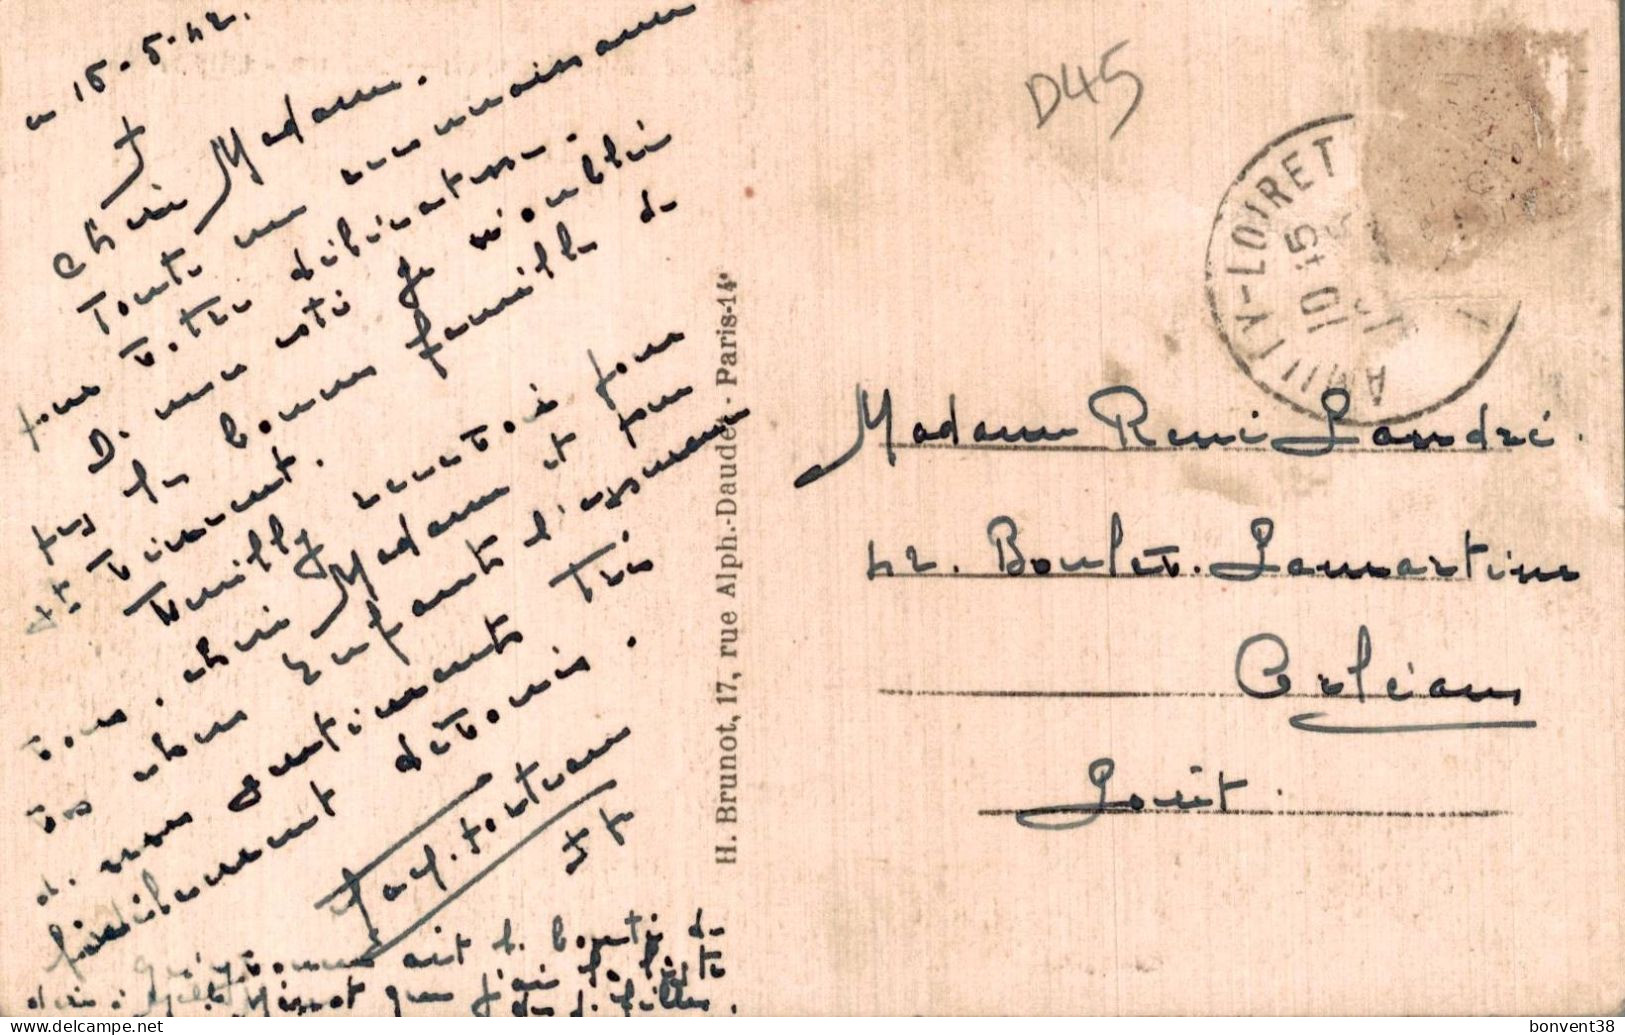 15.5.42.
Chère Madame.
Toute ma reconnaissance
pour votre délicatesse.
De mon côté je n'oublie
pas la bonne famille de
St Vincent.
Veuillez recevoir pour
vous, chère Madame et pour
vos chers enfants l'expression
de mes sentiments très
fidèlement dévoués.
H. Brunot, 17, rue Alph.-Daudet - Paris-14e
D45
AMILLY-LOIRET
15
10
Madame René Landré.
42. Boulev. Lamartine
Orléans
Loiret.
bonvent38